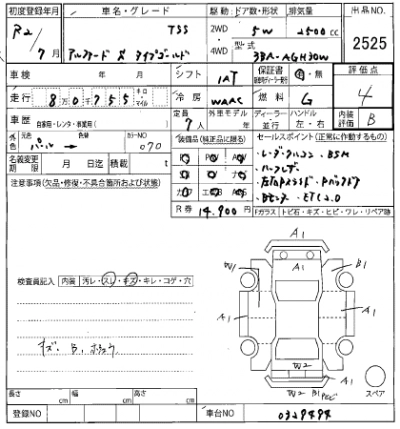 初度登録年月 車名・グレード 駆動 ドア数・形状 排気量 出品NO
R2/7月 アルファード S タイプゴールド TSS 2WD・4WD 5W 2500cc 2525
型式 3BA-AGH30W
車検 年 月 シフト IAT 保証書 有・無 評価点 4
走行 80755 キロ・マイル 冷房 WAAC 燃料 G
車歴 自家用・レンタ・事業用( ) 定員 7人 外車モデル年 ディーラー・並行 ハンドル 左・右 内装評価 B
外色 元色 パール → 色替 カラーNO 070
装備品(純正品に限る) セールスポイント(正常に作動するもの)
・レーダクルコン ・BSM
・ハーフレザー
・左右PスライドドP バックドア
・Bモニター ・ETC2.0
名義変更期限 月 日迄 積載 t
R券 14,900円
注意事項(欠品・修復・不具合箇所および状態)
Fガラス トビ石・キズ・ヒビ・ワレ・リペア跡
A1
W1 B1
A1 A1 A1
検査員記入 内装 汚レ・スレ・キズ・キレ・コゲ・穴
キズ、B、ホシュウ
W2
W2 B1
スペア
長さ cm 幅 cm 高さ cm
登録NO 車台NO 0329494